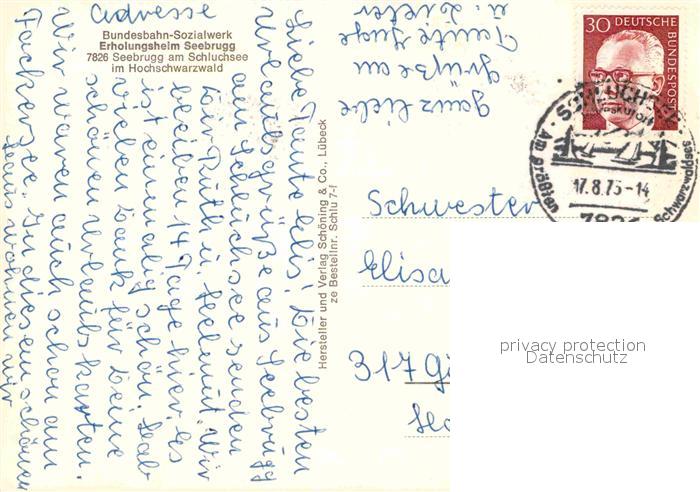 adresse
Bundesbahn-Sozialwerk
Erholungsheim Seebrugg
7826 Seebrugg am Schluchsee
im Hochschwarzwald
Liebe Tante Elis! Die besten
Urlaubsgrüße aus Seebrugg
am Schluchsee senden
Dir Ruth u. Helmut. Wir
bleiben 14 Tage hier. Es
ist einmalig schön. Hab
vielen Dank für Deine
schönen Urlaubskarten.
Wir waren auch schon am
In diesem schönen
Haus wohnen wir
Hersteller und Verlag Schöning & Co., Lübeck
ze Bestellnr. Schlu 7-f
ganz liebe
Grüße an
Tante
u. Dieter
30 DEUTSCHE
BUNDESPOST
SCHLUCHSEE
Am größten
Schwarzwaldsee
17.8.73-14
7821
Schwester
Elisa
317 Gi
privacy protection
Datenschutz